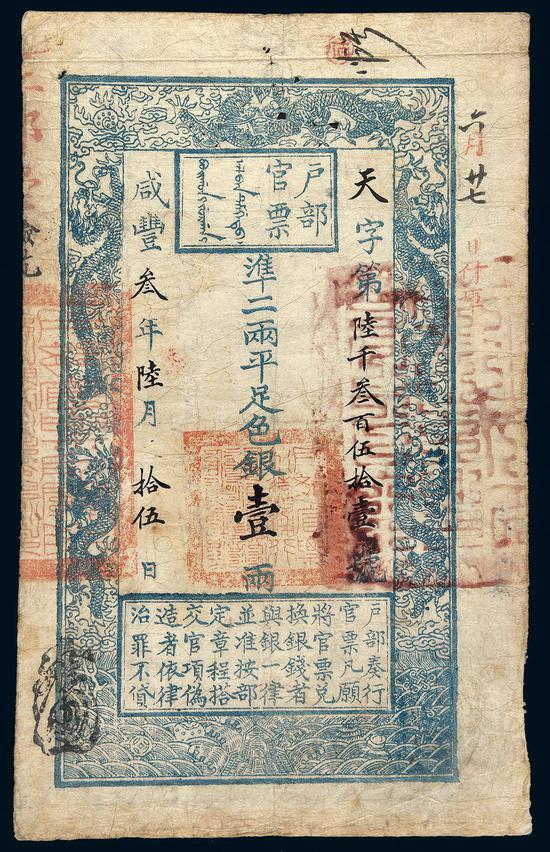 六月廿七日
戶部
官票
天字第陸千叁百伍拾壹號
準二兩平足色銀壹兩
咸豐叁年陸月拾伍日
戶部奏行
官票凡願
將官票兌
換銀錢者
與銀一律
並准按部
定章程搭
交官項偽
造者依律
治罪不貸